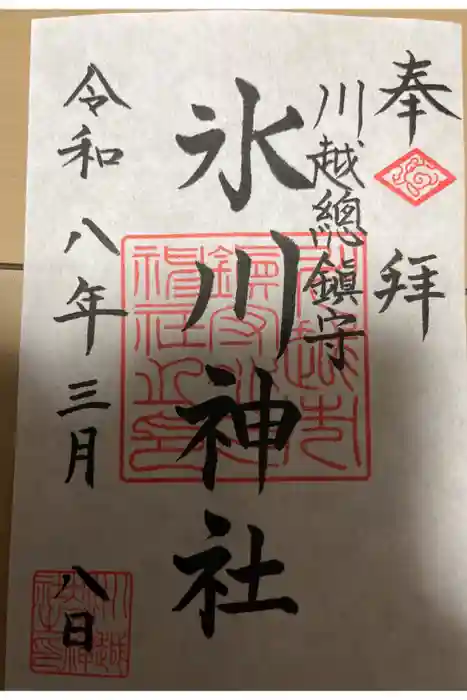 奉拝
川越總鎮守
氷川神社
令和八年三月八日